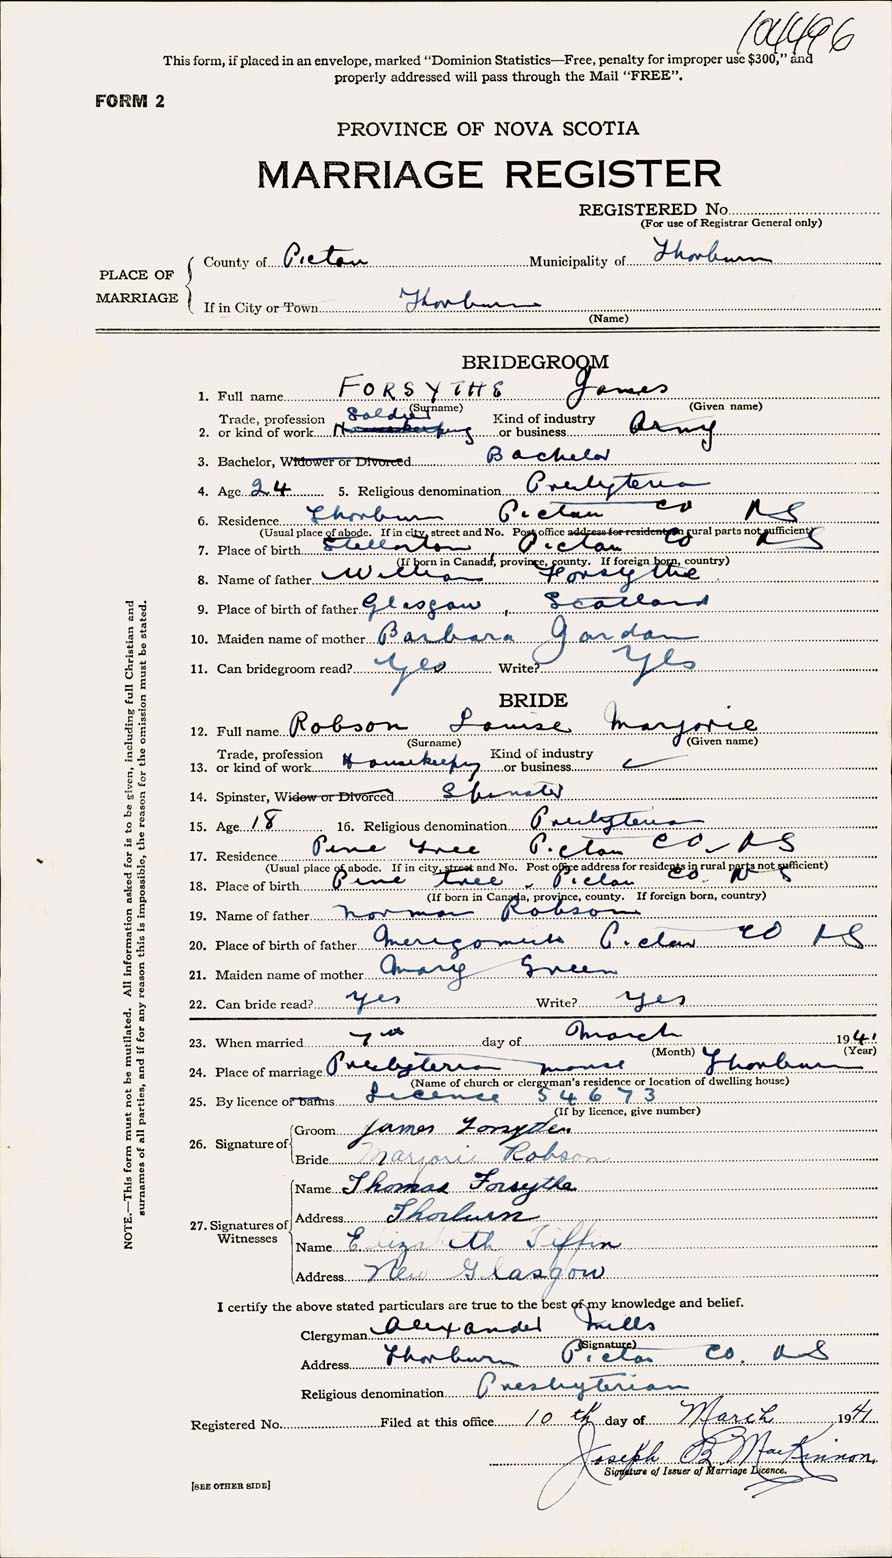 104496
This form, if placed in an envelope, marked "Dominion Statistics—Free, penalty for improper use $300," and
properly addressed will pass through the Mail "FREE".
FORM 2
PROVINCE OF NOVA SCOTIA
MARRIAGE REGISTER
REGISTERED No.
(For use of Registrar General only)
PLACE OF MARRIAGE
County of Pictou Municipality of Thorburn
If in City or Town Thorburn
(Name)
BRIDEGROOM
1. Full name FORSYTHE James
(Surname) (Given name)
Trade, profession Soldier Kind of industry
2. or kind of work Housekeeping or business Army
3. Bachelor, Widower or Divorced Bachelor
4. Age 24 5. Religious denomination Presbyterian
6. Residence Thorburn Pictou Co N S
(Usual place of abode. If in city, street and No. Post office address for residents in rural parts not sufficient)
7. Place of birth Stellarton, Pictou Co N S
(If born in Canada, province, county. If foreign born, country)
8. Name of father William Forsythe
9. Place of birth of father Glasgow, Scotland
10. Maiden name of mother Barbara Gordon
11. Can bridegroom read? Yes Write? Yes
BRIDE
12. Full name Robson Louise Marjorie
(Surname) (Given name)
Trade, profession Kind of industry
13. or kind of work Housekeeping or business
14. Spinster, Widow or Divorced Spinster
15. Age 18 16. Religious denomination Presbyterian
17. Residence Pine Tree Pictou Co. N S
(Usual place of abode. If in city, street and No. Post office address for residents in rural parts not sufficient)
18. Place of birth Pine Tree, Pictou Co. N S
(If born in Canada, province, county. If foreign born, country)
19. Name of father Norman Robson
20. Place of birth of father Merigomish Pictou CO N S
21. Maiden name of mother Mary Green
22. Can bride read? Yes Write? Yes
23. When married 7th day of March 1941
(Month) (Year)
24. Place of marriage Presbyterian manse Thorburn
(Name of church or clergyman's residence or location of dwelling house)
25. By licence or banns License 54673
(If by licence, give number)
26. Signature of
Groom James Forsythe
Bride Marjorie Robson
27. Signatures of Witnesses
Name Thomas Forsythe
Address Thorburn
Name Elizabeth Tiffin
Address New Glasgow
I certify the above stated particulars are true to the best of my knowledge and belief.
Clergyman Alexander Mills
(Signature)
Address Thorburn Pictou Co. N S
Religious denomination Presbyterian
Registered No. Filed at this office 10th day of March 1941
Joseph B. MacKinnon
Signature of Issuer of Marriage Licence.
[SEE OTHER SIDE]
NOTE.—This form must not be mutilated. All information asked for is to be given, including full Christian and
surnames of all parties, and if for any reason this is impossible, the reason for the omission must be stated.